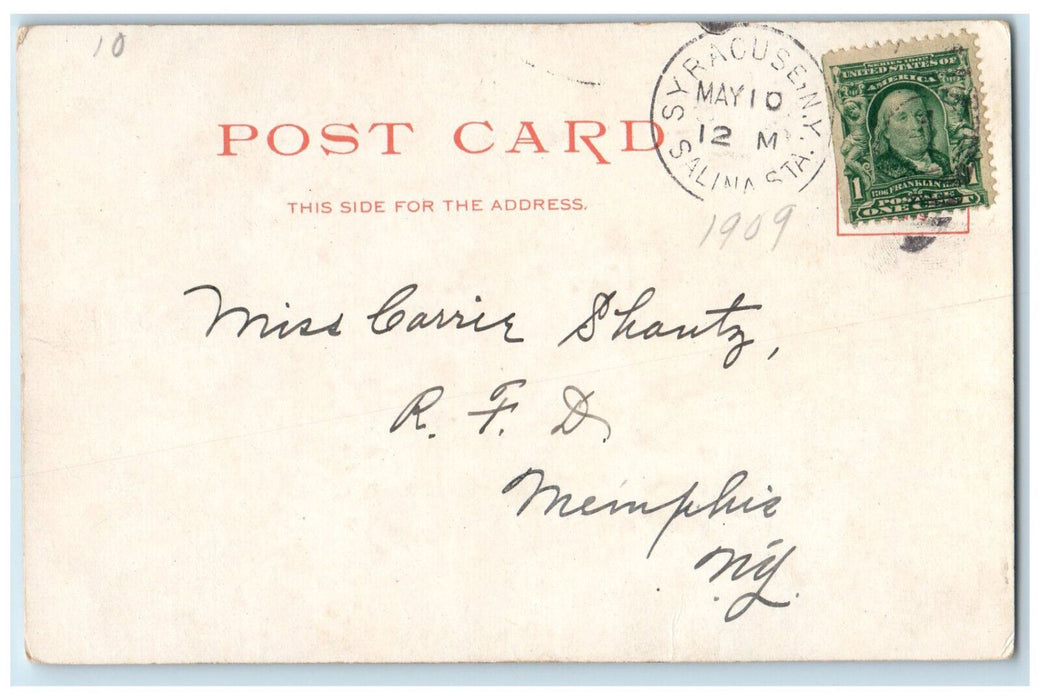 10
SYRACUSE, N.Y.
MAY 10
12 M
SALINA STA.
SERIES 1902
UNITED STATES OF
AMERICA
1 FRANKLIN 1
POSTAGE
ONE CENT
POST CARD
THIS SIDE FOR THE ADDRESS.
1909
Miss Carrie Shantz,
R. F. D.
Memphis
N.Y.